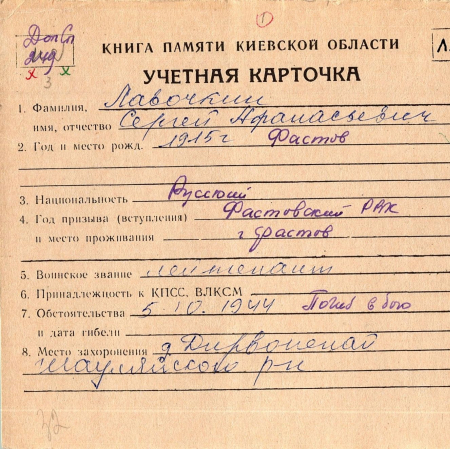 Доп Сп
249
3
1
Л
КНИГА ПАМЯТИ КИЕВСКОЙ ОБЛАСТИ
УЧЕТНАЯ КАРТОЧКА
1. Фамилия, Лавочкин
имя, отчество Сергей Афанасьевич
2. Год и место рожд. 1915г Фастов
3. Национальность Русский
4. Год призыва (вступления) Фастовский РВК
и место проживания г Фастов
5. Воинское звание лейтенант
6. Принадлежность к КПСС, ВЛКСМ
7. Обстоятельства 5.10.1944 Погиб в бою
и дата гибели
8. Место захоронения д. Дирвоненай
Шауляйского р-н
32